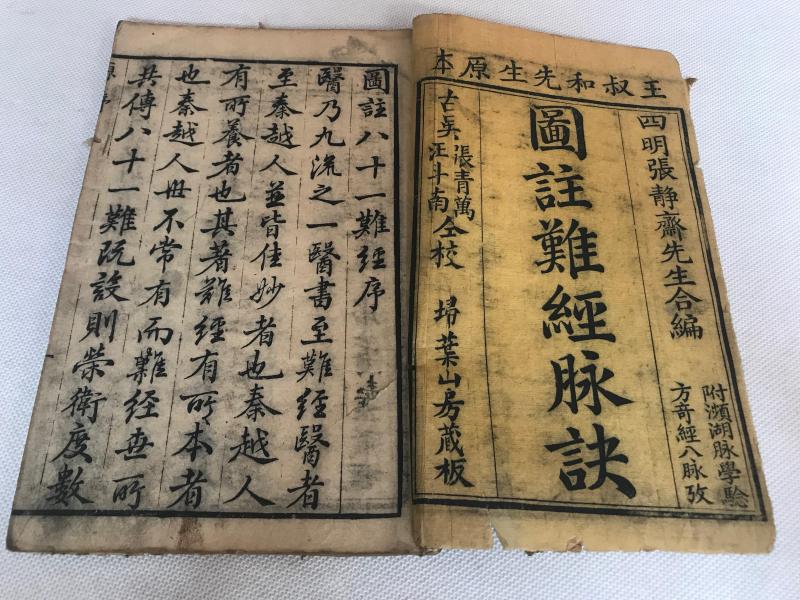 王叔和先生原本
四明張静齋先生合編
附瀕湖脉學驗
方奇經八脉攷
圖註難經脉訣
古吳張青萬
汪斗南仝校
埽葉山房蔵板
圖註八十一難經序
醫乃九流之一醫書至難經醫者
至秦越人並皆佳妙者也秦越人
有所養者也其著難經有所本者
也秦越人毋不常有而難經毋所
共傳八十一難既設則榮衛度數